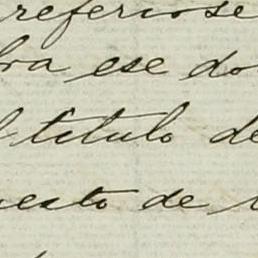 referirse
ra ese do
l titulo de
uesto de